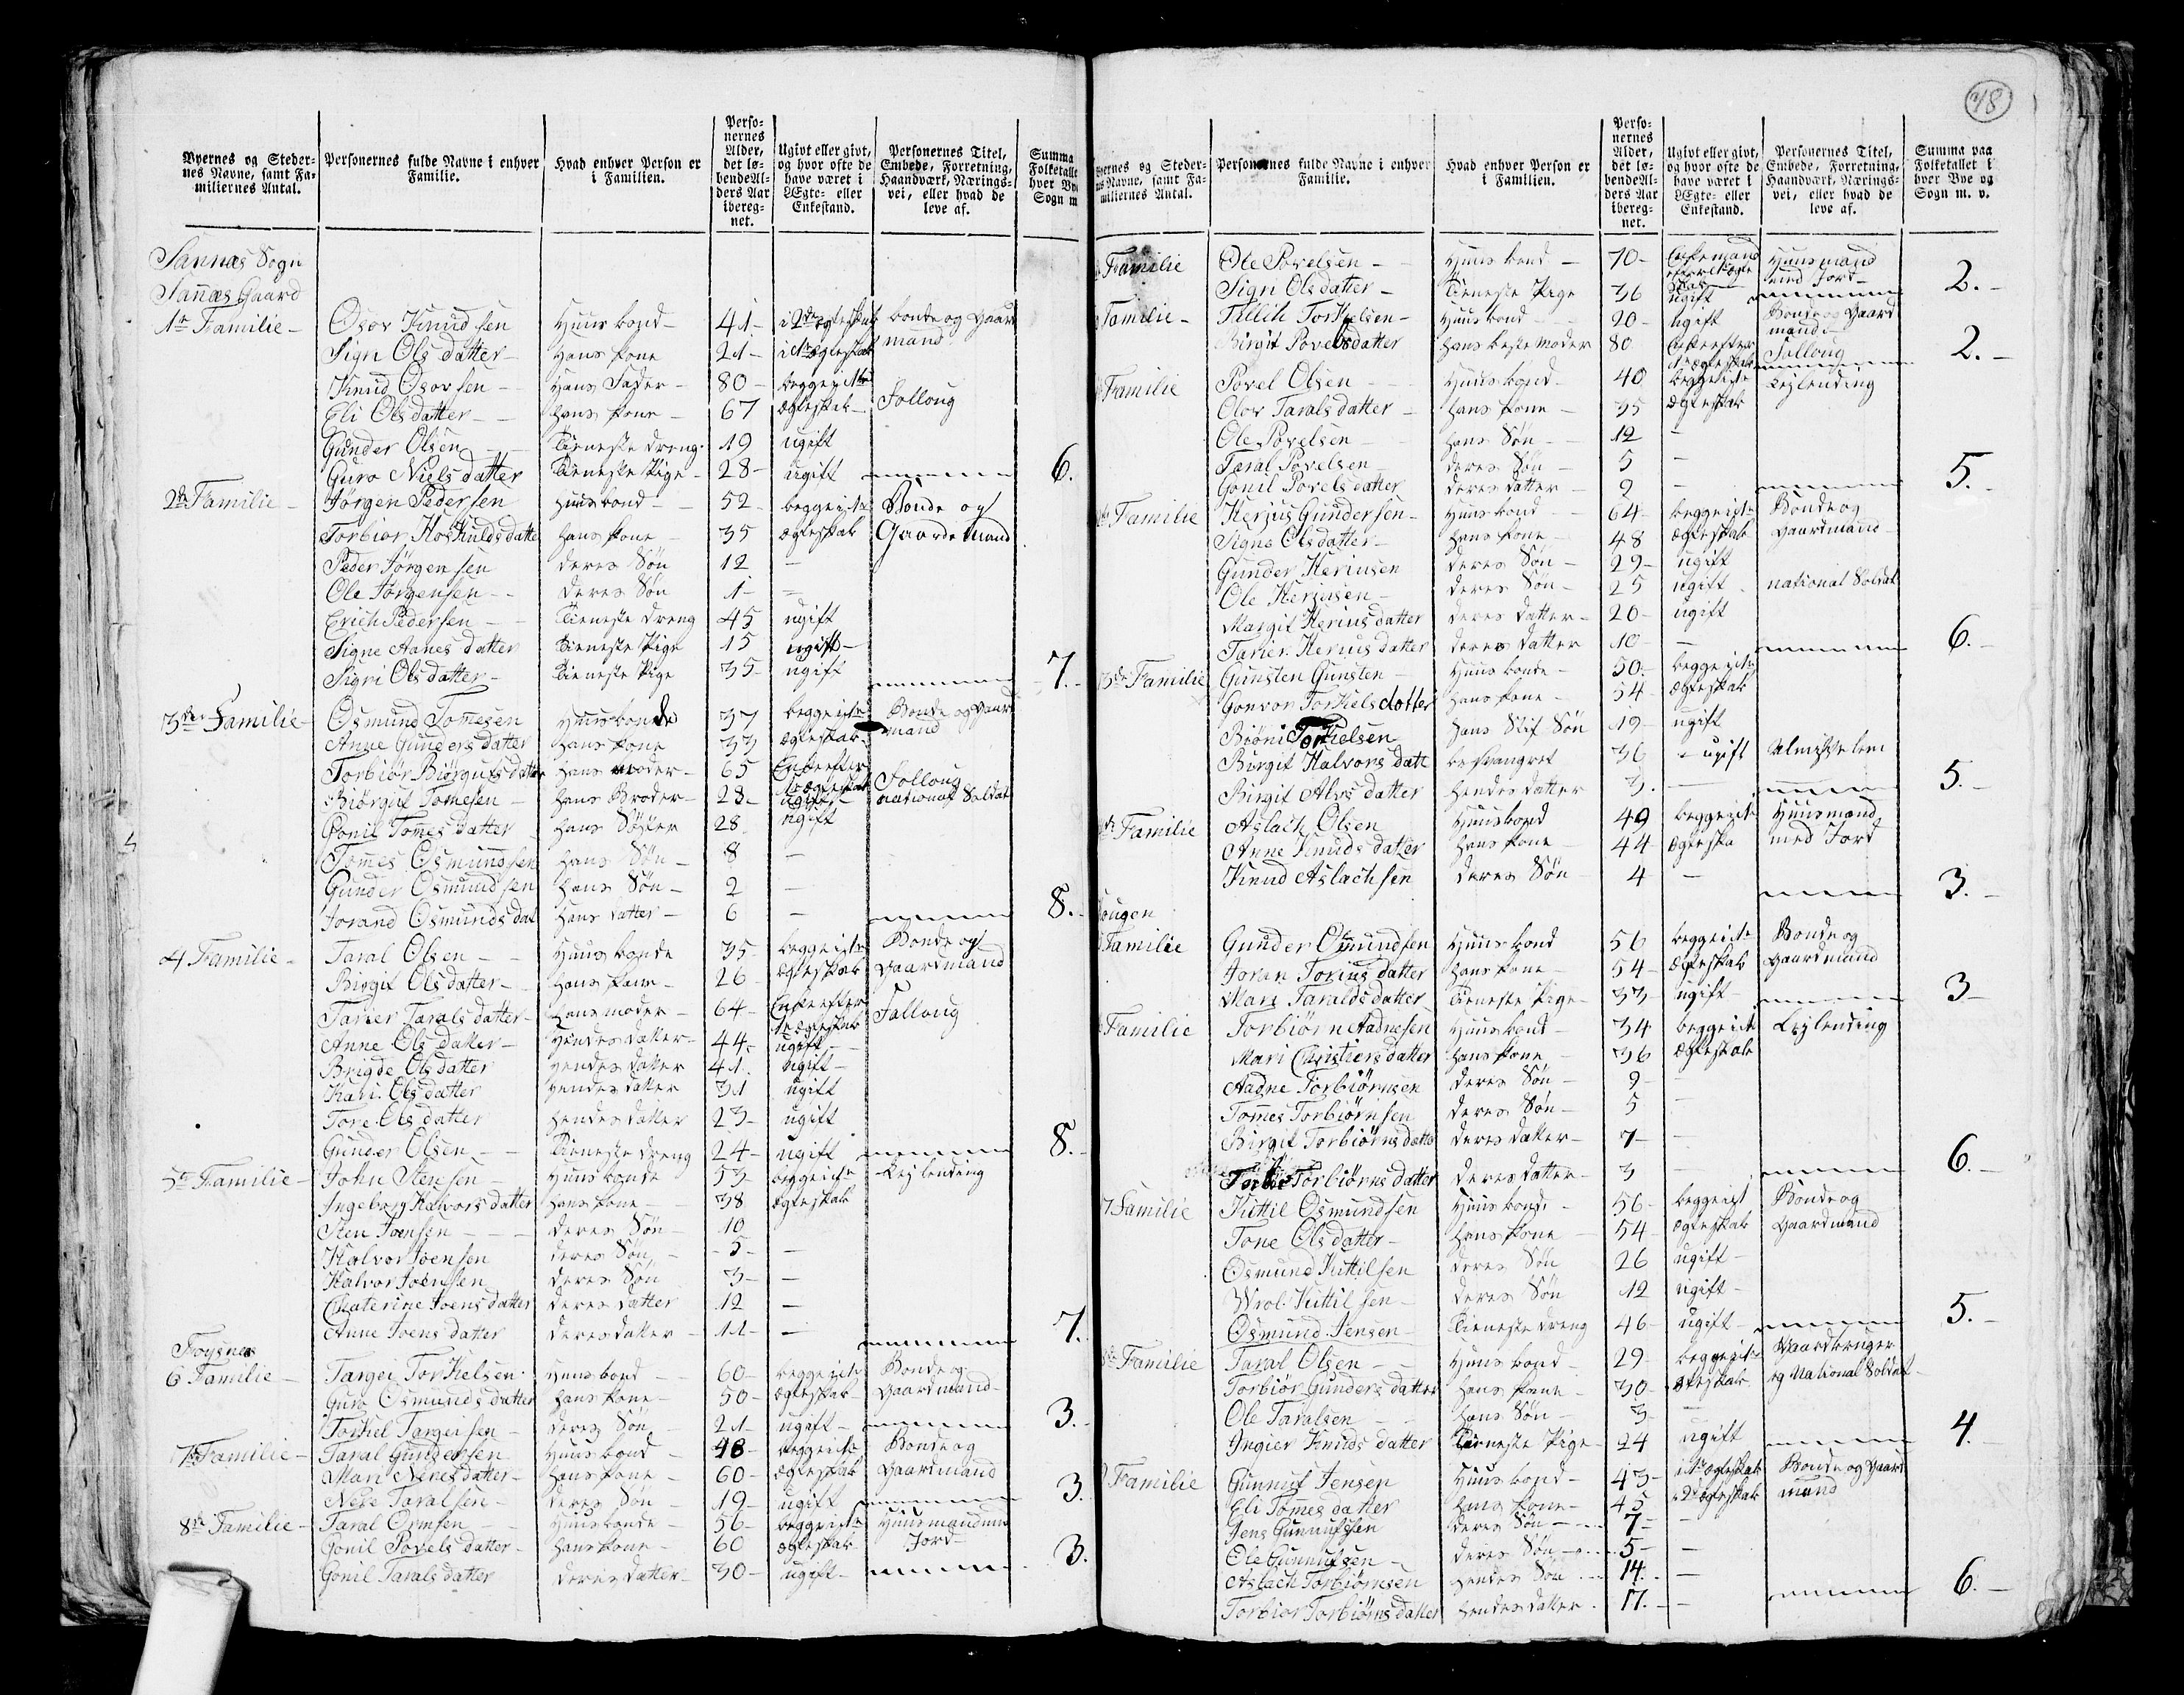 Byernes og Steder-
nes Navne, samt Fa-
miliernes Antal.
Personernes fulde Navne i enhver
Familie.
Hvad enhver Person er
i Familien.
Perso-
nernes
Alder,
det lø-
bende Al-
ders Aar
ibereg-
net.
Ugivt eller givt,
og hvor ofte de
have været i
Ægte- eller
Enkestand.
Personernes Titel,
Embede, Forretning,
Haandværk, Nærings-
vei, eller hvad de
leve af.
Summa
Folketallet
hver Bye
Sogn m
Sannæs Sogn
Sannæs Gaard
1te Familie - Osov Knudsen Huusbond - 41 - i 2det ægteskab bonde og Gaard
Sign Olsdatter - Hans kone 21 - i 1te ægteskab mand
Knud Osovsen - Hans Fader - 80 - begge i 1te
Eli Olsdatter - hans kone - 67 ægteskab - Folloug
Gunder Olsen Tieneste dreng 19 ugift
Guro Nielsdatter Tieneste Pige - 28 - ugift 6.
2de Familie - Jørgen Pedersen huusbond - 52 - begge i 1te Bonde og
Torbior Hoskuldsdatte hans kone - 35 ægteskab Gaardemand
Peder Jørgensen deres Søn 12 -
Ole Jørgensen - deres Søn 1 -
Erich Pedersen - Tieneste dreng 45 ugift
Signe Aanesdatter Tieneste Pige 15 ugift -
Sigri Olsdatter - Tieneste Pige 35 - ugift 7. -
3de Familie - Osmund Tomesen Huusbonde 37 begge i 1te Bonde og Gaard
Anne Gundersdatter hans kone 33 ægteskab. mand
Torbiør Biørgufsdatter hans moder - 65 Enke efter
Biørguf Tomesen - hans Broder - 28 - 1te ægteskab Folloug
ugift - national Soldat
Gonil Tomesdatter hans Søster 28 ugift
Tomes Osmundsen hans Søn - 8 -
Gunder Osmundsen hans Søn - 2 -
Jorand Osmundsdat hans datter - 6 - 8. -
4 Familie - Taral Olsen - Huusbonde 35 - begge i 1te Bonde og
Birgit Olsdatter - hans kone - 26 - ægteskab Gaardmand
Tarier Taralsdatter - hans moder - 64 - Enke efter Folloug
1te ægteskab
Anne Olsdatter - hendes datter - 44 - ugift -
Brigde Olsdatter hendes datter 41. ugift -
Kari Olsdatter hendes datter 31 ugift
Tore Olsdatter hendes datter 23 - ugift
Gunder Olsen - Tieneste dreng 24 - ugift 8. -
5te Familie - John Stensen - Huusbonde 53 - begge i 1te Lejlending
Ingeborg Halvorsdatter hans kone - 38 ægteskab
Sten Joensen - deres Søn - 10
Halvor Joensen deres Søn - 5 - -
Halvor Joensen deres Søn 3 - -
Chaterine Joensdatter deres datter 12 -
Anne Joensdatter deres datter - 11 - - 7.
Foysnes
6 Familie - Targei Torkielsen huusbond 60 - begge i 1te Bonde og
Guro Osmundsdatter hans kone - 50 - ægteskab Gaardmand -
Torkiel Targeisen - deres Søn 21 - ugift - 3. -
7te Familie - Taral Gundersen Huusbond - 48 - begge i 1te Bonde og
Mari Neresdatter - hans kone - 60 - ægteskab Gaardmand
Nere Taralsen - deres Søn - 19 - ugift 3.
8de Familie - Taral Ormsen Huusbonde - 56 - begge i 1te Huusmand med
Gonil Povelsdatter - hans kone - 60 ægteskab Jord -
Gonil Taralsdatter deres datter - 30 - ugift - 3.
48
Byernes og Steder-
nes Navne, samt Fa-
miliernes Antal.
Personernes fulde Navne i enhver
Familie.
Hvad enhver Person er
i Familien.
Perso-
nernes
Alder,
det lø-
bende Al-
ders Aar
ibereg-
net.
Ugivt eller givt,
og hvor ofte de
have været i
Ægte- eller
Enkestand.
Personernes Titel,
Embede, Forretning,
Haandværk, Nærings-
vei, eller hvad de
leve af.
Summa paa
Folketallet i
hver Bye og
Sogn m. v.
Familie Ole Povelsen - Huusbond - 70 - Enkemand Huusmand
efter 1te ægte skab med Jord
Sign Olsdatter - Tieneste Pige 36 ugift 2. -
Familie - Tallich Torkelsen - Huusbond 20 - ugift Bonde og Gaard
mand -
Birgit Povelsdatter hans beste moder 80 Enke efter Folloug 2. -
1te ægteskab
Familie Povel Olsen - Huusbond - 40 begge i 1te Lejlending
Olov Taralsdatter - hans kone - 35 ægteskab
Ole Povelsen - hans Søn - 12 -
Taral Povelsen deres Søn - 5 -
Gonil Povelsdatter deres datter - 2 - 5. -
Familie Kerjus Gundersen - Huusbond 64 - begge i 1te Bonde og
Signe Olsdatter - hans kone - 48 ægteskab Gaardmand -
Gunder Keriusen deres Søn - 29 - ugift
Ole Kerjusen - deres Søn - 25 ugift national Soldat
Margit Keriusdatter deres datter - 20 - ugift
Tarier Keriusdatter deres datter 10 - - 6. -
3de Familie Gunsten Gunsten - Huusbonde - 50. begge i 1te
Gonvor Torkielsdatter hans kone - 54 - ægteskab
Biøn Torkielsen hans Stif Søn 19 - ugift
Birgit Halvorsdatt besvangret 36 - ugift Almisselem
Birgit Alvsdatter hendes datter 3. - 5. -
Familie Aslach Olsen Huusbond 49 begge i 1te Huusmand
Anne Knudsdatter hans kone - 44 - ægteska med Jord
Knud Aslachsen deres Søn - 4 - 3. -
ougen
Familie Gunder Osmundsen Huusbond 56 begge i 1te Bonde og
Joran Toriusdatter hans kone - 54 - ægteskab Gaardmand
Mari Taraldsdatter Tieneste Pige - 33 - ugift - 3 -
Familie Torbiørn Aadnesen Huusbond - 34 begge i 1te Lejlending
Mari Christiersdatter hans kone 36 ægteskab
Aadne Torbiørnsen deres Søn - 9 -
Tomes Torbiørnsen deres Søn - 5 -
Birgit Torbiørnsdatte deres datter - 7 - -
Torbiørnsdatter deres datter - 3 - 6. -
7 Familie Kittil Osmundsen Huusbonde - 56 - begge i 1st Bonde og
Tone Olsdatter - hans kone 54 - ægteskab Gaardmand
Osmund Kittilsen deres Søn 26 ugift -
Wrol Kittilsen - deres Søn 12 ugift -
Osmund Jensen - Tieneste dreng 46 - ugift - 5. -
Familie Taral Olsen - Huusbond - 29 - begge i 1te Gaardbruger
Torbiør Gundersdatter hans kone - 30 - ægteskab og National Soldat -
Ole Taralsen - hans Søn - 3 -
Ingier Knudsdatter Tieneste Pige - 24 ugift 4. -
Familie Gunnuf Jensen Huusbond - 43 - i 1te ægteskab Bonde og Gaard
Eli Tomesdatter hans kone - 45 2det ægteskab mand
Jens Gunnufssen deres Søn - 7 - -
Ole Gunnufsen - deres Søn - 5 - -
Aslach Torbiørnsen hendes Søn 14. -
Torbior Torbiørnsdatter hendes datter. 17. - 6. -